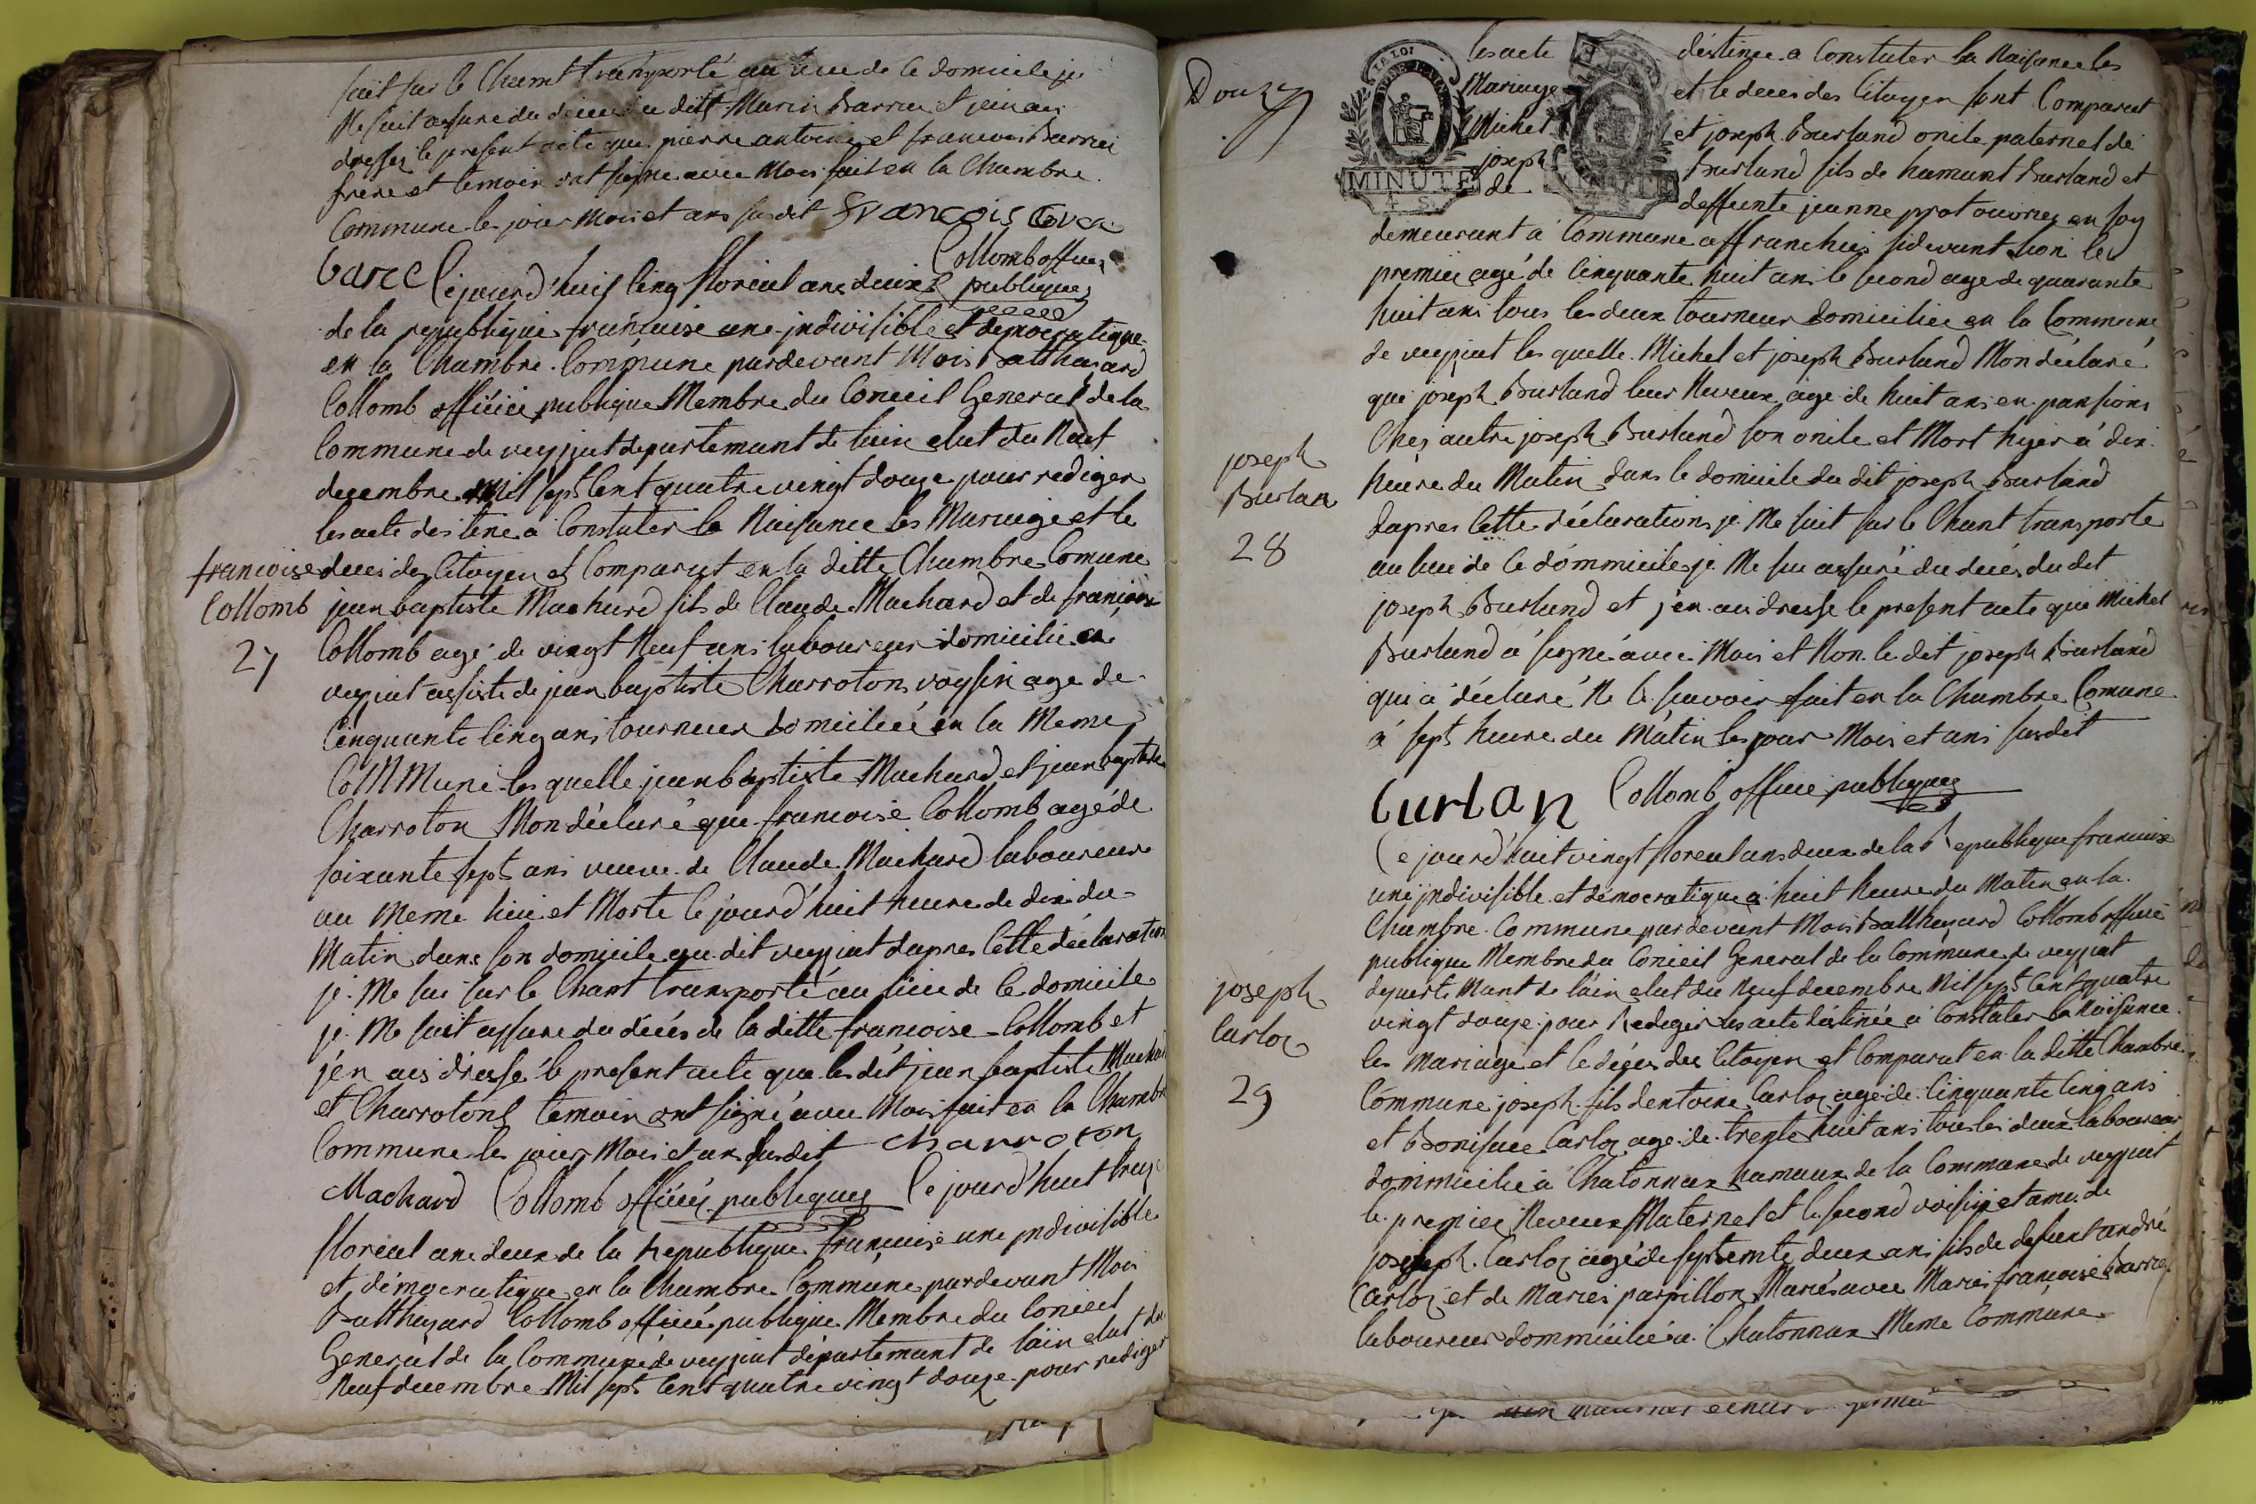 suit sur le Chamt transporté au lieu de ce domicile je
Me suit assure du déces du ditt Marin Barrin et jen ai
dressez le present acte que pierre antoine et francois Barrin
frere et temoin ont signe avec Moi fait en la Chambre
Commune les jour Mois et ans susdit François
Collomb officie
publique
Cejourd'huif Cinq floreal ans deuxe
de la republique francaise une indivisible et democratique
en la Chambre Commune pardevant Mois Balthazard
Collomb officie publique Membre du Conceil General de la
Commune de veyziat departemant de lain elut du Neuf
decembre Mil sept Cent quatre vingt douze pour rediger
les acte destine a Constater la Naisance les Mariage et le
francoise
Collomb
27
deces des Citoyen et Comparut en la ditte Chambre Comune
jean baptiste Machard fils de Claude Machard et de francoise
Collomb agé de vingt Neuf ans laboureur domicilie a
veyziat assiste de jean baptiste Charroton voysin age de
Cinquante Cinq ans tourneur domiciliée en la Meme
CoMMune les quelle jean baptiste Machard et jean baptiste
Charroton Mon déclaré que francoise Collomb agé de
soixante sept ans veuve de Claude Machard laboureur
au Meme lieu et Morte Cejourd'huit heure de dix du
Matin dans son domicile au dit veyziat dapres Cette déclaration
je Me sui sur le Chant transporté au lieu de Ce domicile
je Me suit assure du décés de la ditte francoise Collomb et
j'en ais dressé le present acte que les dit jean baptiste Machard
et Charrotons temoin ont signé avec Mois fait en la Chambre
Commune les jour Mois et an susdit charroton
Machard Collomb officié publique Ce jourd'huit treize
floreal ans deux de la republique francaise une indivisible
et démocratique en la Chambre Commune pardevant Moi
Balthazard Collomb officié publique Membre du Conceil
General de la Commune de veyziat departemant de lain elut du
Neuf decembre Mil sept Cent quatre vingt douze pour rediger
Douze
LA LOI
MINUTE
4 S.
les acte déstinee a Constater la Naisance les
Mariage et le deces des Citoyen sont Comparut
Michel et joseph Burland oncle paternel de
joseph Burland fils de humant Burland et
de deffunte jeanne prot ouvrier en soy
demeurant à Commune affranchie sidevant lion le
premier agé de Cinquante huit ans le second age de quarante
huit ans tous les deux tourneur domicilie en la Commune
de veyziat les quelle Michel et joseph Burland Mon déclaré
que joseph Burland leur Neveux age de huit ans en pansions
Chez autre joseph Burland son oncle et Mort hyer a dix
joseph
Burlan
28
heure du Matin dans le domicile du dit joseph Burland
Dapres Cette déclaration je Me suit sur le Chant transporte
au lieu de Ce dommicile je Me sui assuré du déces du dit
joseph Burland et j'en ai dresse le present acte que Michel
Burland a signé avec Mois et Non le dit joseph Burland
qui a déclaré Ne le savoir fait en la Chambre Comune
a sept heure du Matin les jour Mois et ans susdit
Curlan Collomb officie publique
Ce jourd'huit vingt floreal ans deux de la Republique francaise
une indivisible et démocratique a huit heure du Matin en la
Chambre Commune pardevant Mois Balthazard Collomb officié
publique Membre du Conceil General de la Commune de veyziat
departemant de lain elut du Neuf decembre Mil sept Cent quatre
joseph
Carloz
29
vingt douze pour Rediger les acte déstinée a Constater la Naisance
les Mariage et le déces des Citoyen et Comparut en la ditte Chambre
Commune joseph fils dentoine Carloz age de Cinquante Cinq ans
et Boniface Carloz age de trente huit ans tous les deux laboureur
dommicilie a Chatonnax hamaux de la Commune de veyziat
le premier Neveux Maternel et le second voisin et ame de
joseph Carloz agé de septante deux ans fils de defunt andré
Carloz et de Marie parpillon Marié avec Marie françoise Barrin
laboureur dommicilié a Chatonnax Meme Commune